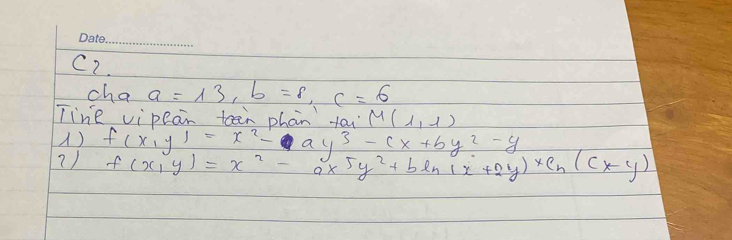 Date..........................
C2.
cha a = 13, b = 8, c = 6
Tính vi phân toàn phần tại M(1,1)
1) f(x,y) = x² - ay³ - cx + by² - y
2) f(x,y) = x² - ax⁵y² + bln(x + 2y) * ln(cx - y)